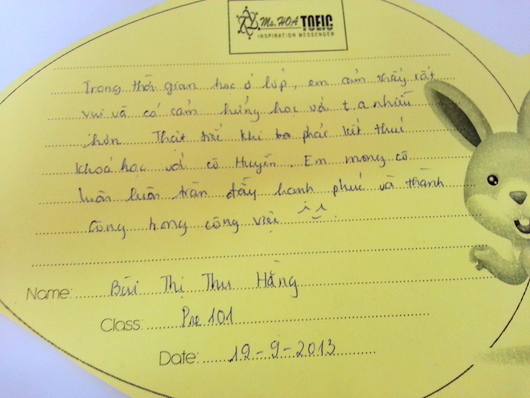 Ms. HOA TOEIC
INSPIRATION MESSENGER
Trong thời gian học ở lớp, em cảm thấy rất
vui và có cảm hứng học với t.a nhiều
hơn. Thật tiếc khi ta phải kết thúc
khoá học với cô Huyền. Em mong cô
luôn luôn tràn đầy hạnh phúc và thành
công trong công việc
Name: Bùi Thị Thu Hằng
Class: Pre 101
Date: 19-9-2013